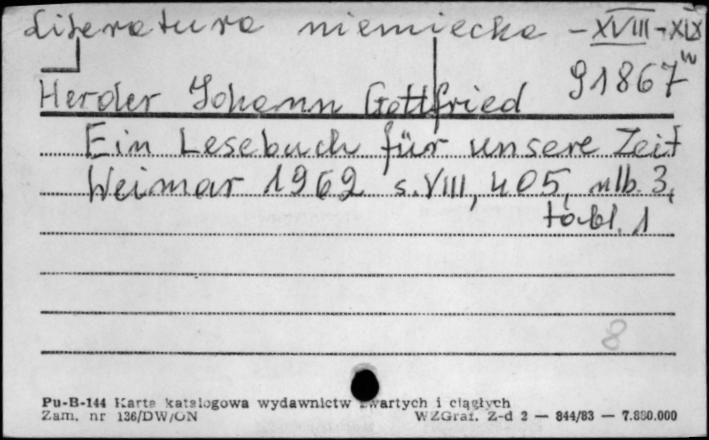 Literatura niemiecka - XVIII - XIX w
91867
Herder Johann Gottfried
Ein Lesebuch für unsere Zeit
Weimar 1969 s. VIII, 405, nlb. 3,
tabl. 1
8
Pu-B-144 Karta katalogowa wydawnictw zwartych i ciągłych
Zam. nr 136/DW/ON WZGraf. Z-d 2 — 844/83 — 7.880.000